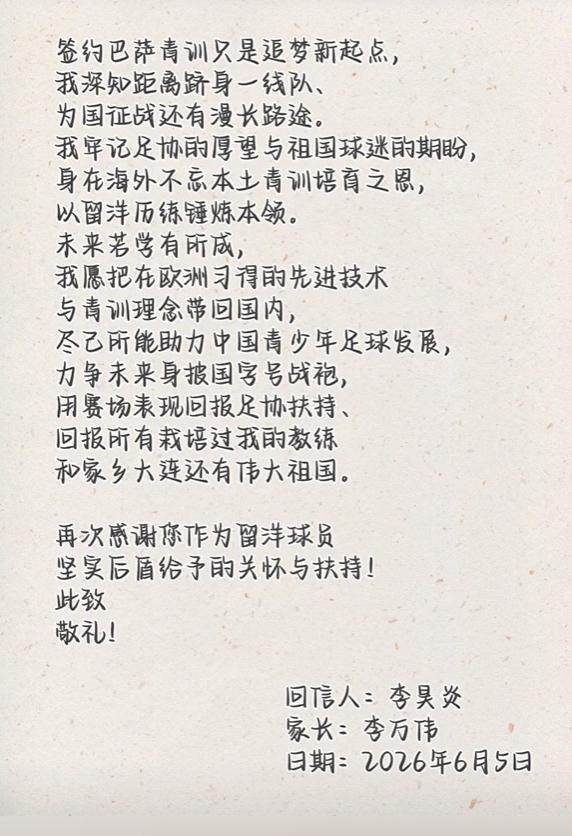 签约巴萨青训只是追梦新起点，
我深知距离跻身一线队、
为国征战还有漫长路途。
我牢记足协的厚望与祖国球迷的期盼，
身在海外不忘本土青训培育之恩，
以留洋历练锤炼本领。
未来若学有所成，
我愿把在欧洲习得的先进技术
与青训理念带回国内，
尽己所能助力中国青少年足球发展，
力争未来身披国字号战袍，
用赛场表现回报足协扶持、
回报所有栽培过我的教练
和家乡大连还有伟大祖国。
再次感谢您作为留洋球员
坚实后盾给予的关怀与扶持！
此致
敬礼！
回信人：李昊炎
家长：李万伟
日期：2026年6月5日